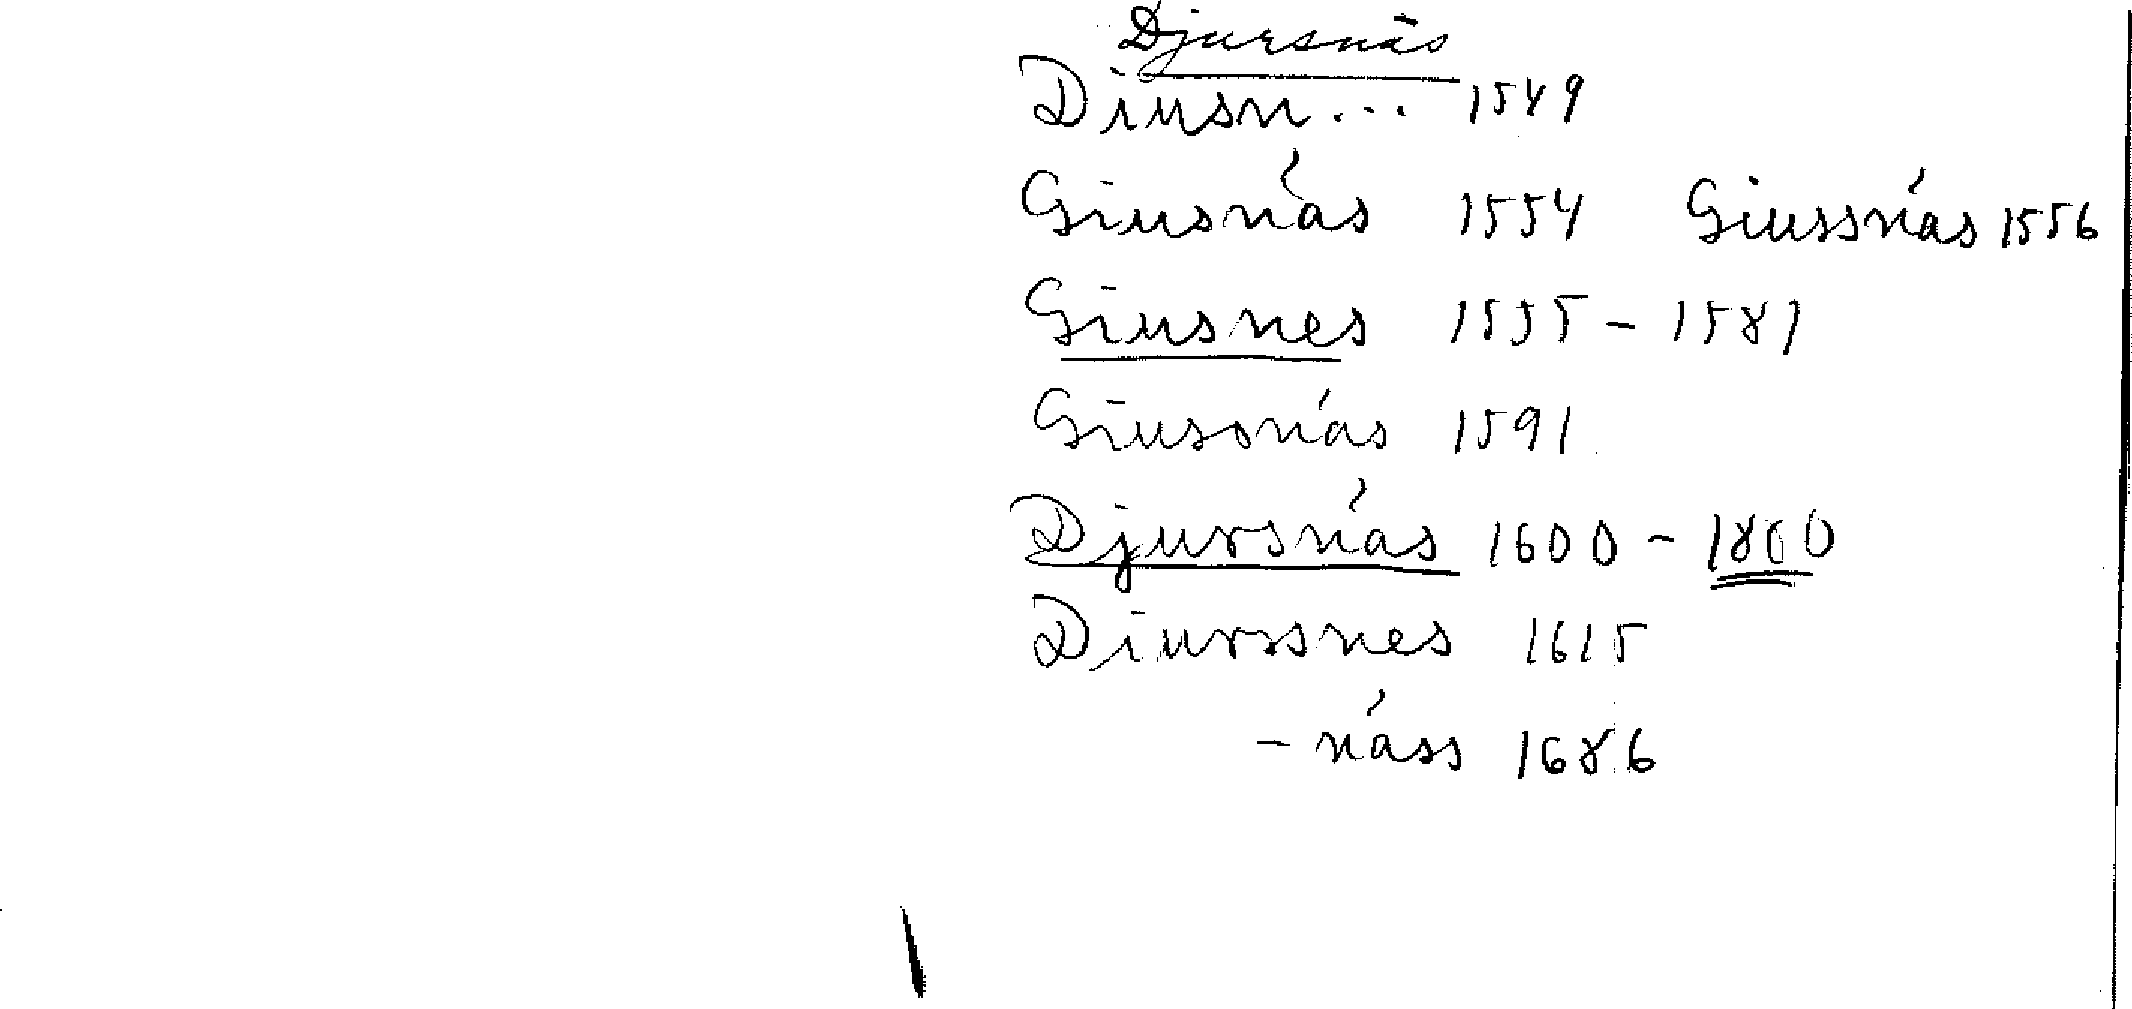 Djursnäs
Diusn... 1549
Giusnäs 1554 Giussnäs 1556
Giusnes 1555 - 1581
Giussnäs 1591
Djursnäs 1600 - 1800
Diurssnes 1615
- näss 1686